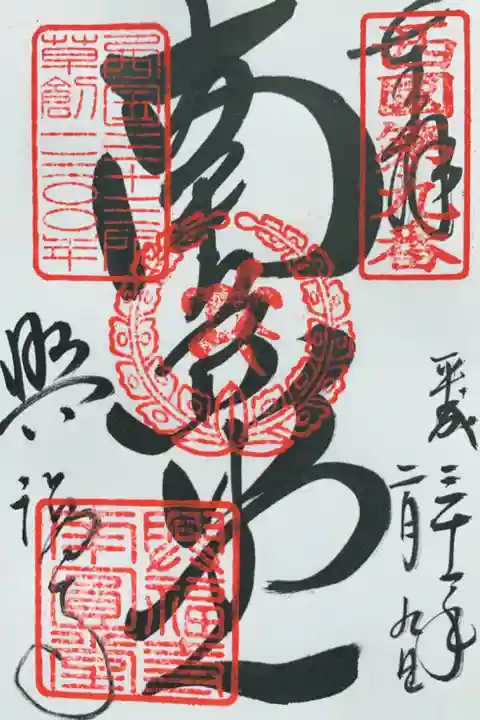 奉拝
西国第九番
平成三十一年
二月九日
南円堂
西国三十三所
草創一三〇〇年
興福寺
興福寺
南圓堂